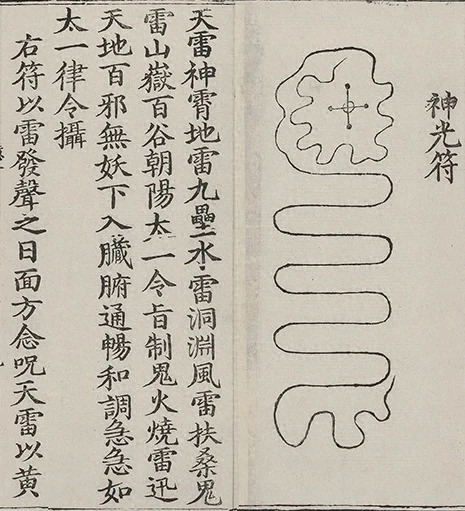 神光符
天雷神霄地雷九壘水雷洞淵風雷扶桑鬼
雷山嶽百谷朝陽太一令旨制鬼火燒雷迅
天地百邪無妖下入臟腑通暢和調急急如
太一律令攝
右符以雷發聲之日面方念呪天雷以黃